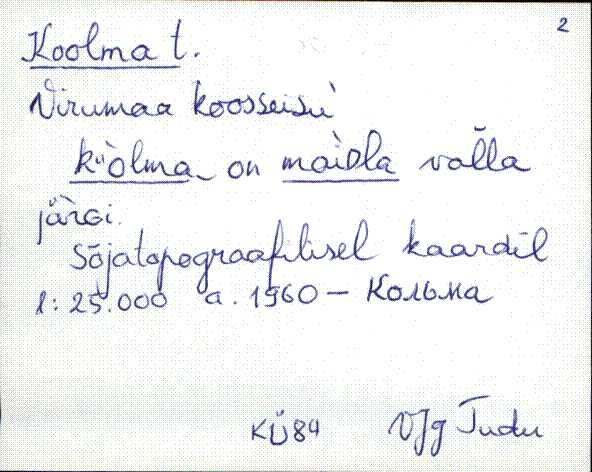 2
Koolma t.
Virumaa koosseisu
kùolma on maìdla vàlla
järgi.
Sõjatopograafilisel kaardil
1:25.000 a. 1960 – Кольма
KÜ84 VJg Tudu